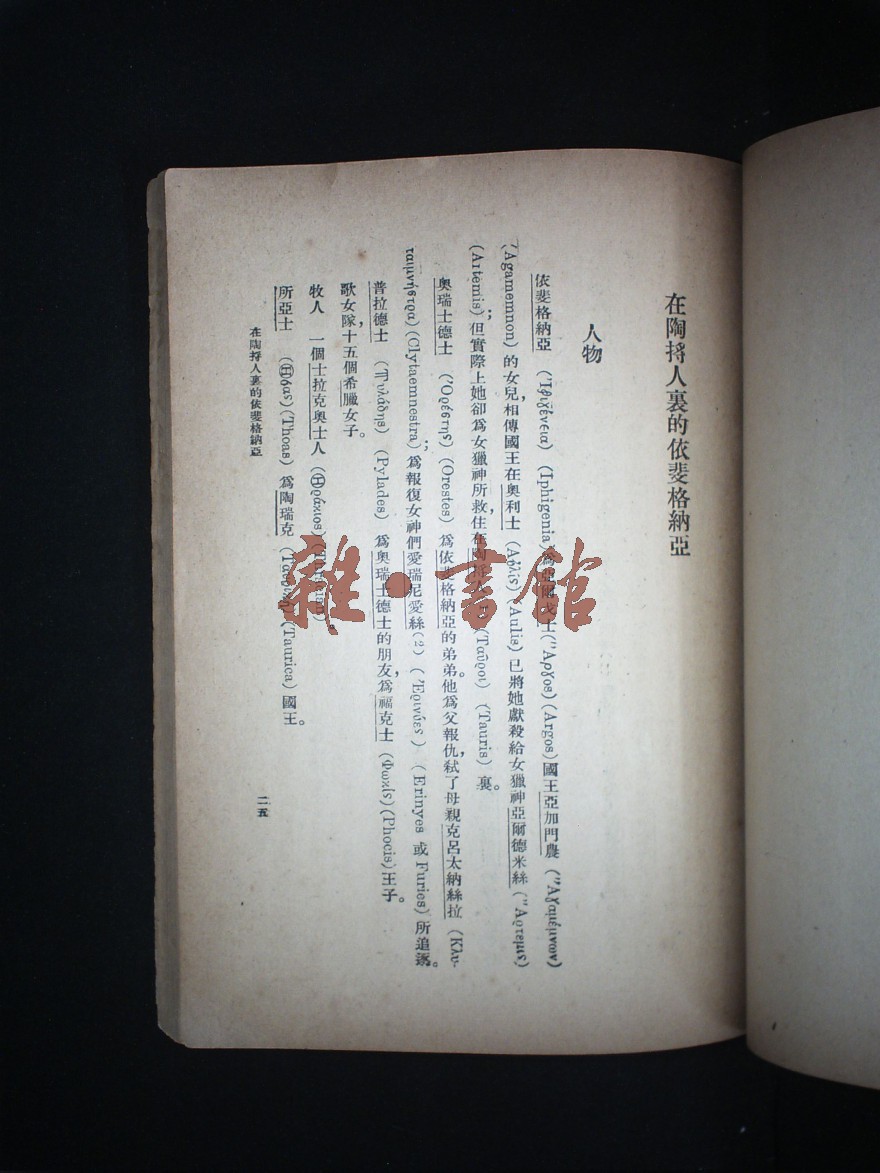 在陶捋人裏的依斐格納亞
人物
依斐格納亞 (Ἰφιγένεια) (Iphigenia) 爲亞爾戈士 (Ἄργος) (Argos) 國王亞加門農 (Ἀγαμέμνων)
(Agamemnon) 的女兒，相傳國王在奧利士 (Αὐλίς) (Aulis) 已將她獻殺給女獵神亞爾德米絲 (Ἄρτεμις)
(Artemis)；但實際上她卻爲女獵神所救住在陶捋 (Ταῦροι) (Tauris) 裏。
奧瑞士德士 (Ὀρέστης) (Orestes) 爲依斐格納亞的弟弟。他爲父報仇，弒了母親克呂太納絲拉 (Κλυ-
ταιμνήστρα) (Clytaemnestra)；爲報復女神們愛瑞尼愛絲(2) (Ἐρινύες) (Erinyes 或 Furies) 所追逐。
普拉德士 (Πυλάδης) (Pylades) 爲奧瑞士德士的朋友，爲福克士 (Φωκίς) (Phocis) 王子。
歌女隊，十五個希臘女子。
牧人 一個士拉克奧士人 (Θρᾴκιος)
所亞士 (Θόας) (Thoas) 爲陶瑞克 (Taurica) 國王。
在陶捋人裏的依斐格納亞
二五
雜·書館